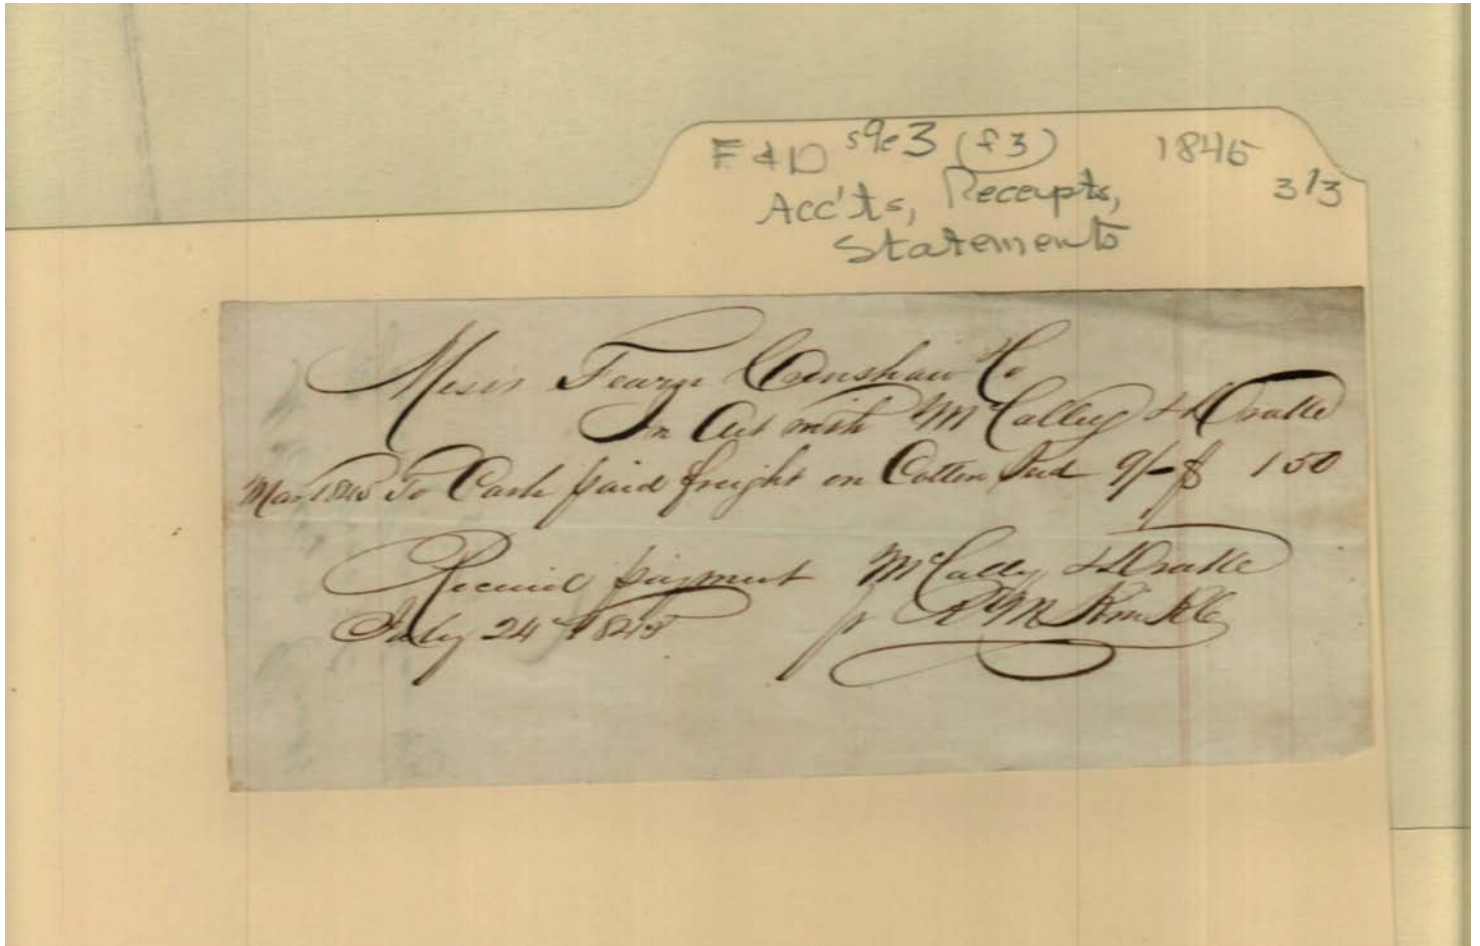 F & D s9e3 (f3) 1845
3/3
Acc'ts, Receipts,
Statements
Messrs Fearn Crenshaw & Co
In Act with McCalley & Drake
Mar 1845 To Cash paid freight on Cotton Seed 9/- $ 1 50
Received payment McCalley & Drake
July 24th 1845 pr R M